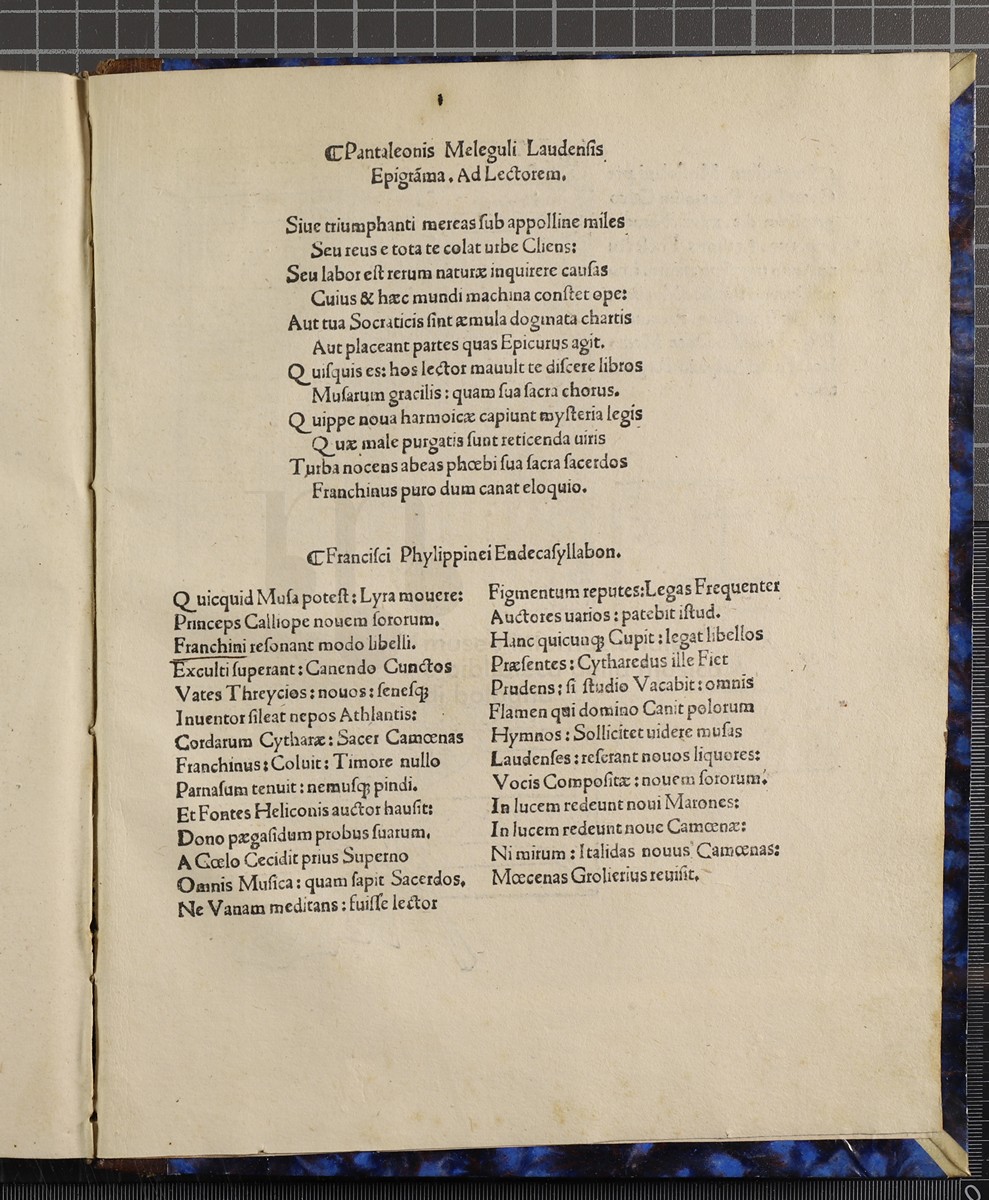 ⸿Pantaleonis Meleguli Laudenſis
Epigrãma. Ad Lectorem.
Siue triumphanti mereas ſub appolline miles
Seu reus e tota te colat urbe Cliens:
Seu labor eſt rerum naturæ inquirere cauſas
Cuius & hæc mundi machina conſtet ope:
Aut tua Socraticis ſint æmula dogmata chartis
Aut placeant partes quas Epicurus agit.
Quiſquis es: hos lector mauult te diſcere libros
Muſarum gracilis: quam ſua ſacra chorus.
Quippe noua harmoicæ capiunt myſteria legis
Quæ male purgatis ſunt reticenda uiris
Turba nocens abeas phœbi ſua ſacra ſacerdos
Franchinus puro dum canat eloquio.
⸿Franciſci Phylippinei Endecaſyllabon.
Quicquid Muſa poteſt: Lyra mouere:
Princeps Calliope nouem ſororum.
Franchini reſonant modo libelli.
Exculti ſuperant: Canendo Cunctos
Vates Threycios: nouos: ſeneſq;
Inuentor ſileat nepos Athlantis:
Cordarum Cytharæ: Sacer Camœnas
Franchinus: Coluit: Timore nullo
Parnaſum tenuit: nemuſq; pindi.
Et Fontes Heliconis auctor hauſit:
Dono pægaſidum probus ſuarum.
A Cœlo Cecidit prius Superno
Omnis Muſica: quam ſapit Sacerdos.
Ne Vanam meditans: fuiſſe lector
Figmentum reputes: Legas Frequenter
Auctores uarios: patebit iſtud.
Hanc quicunq; Cupit: legat libellos
Præſentes: Cytharedus ille Fiet
Prudens: ſi ſtudio Vacabit: omnis
Flamen qui domino Canit polorum
Hymnos: Sollicitet uidere muſas
Laudenſes: referant nouos liquores:
Vocis Compoſitæ: nouem ſororum.
In lucem redeunt noui Marones:
In lucem redeunt noue Camœnæ:
Ni mirum: Italidas nouus Camœnas:
Mœcenas Grolierius reuiſit.